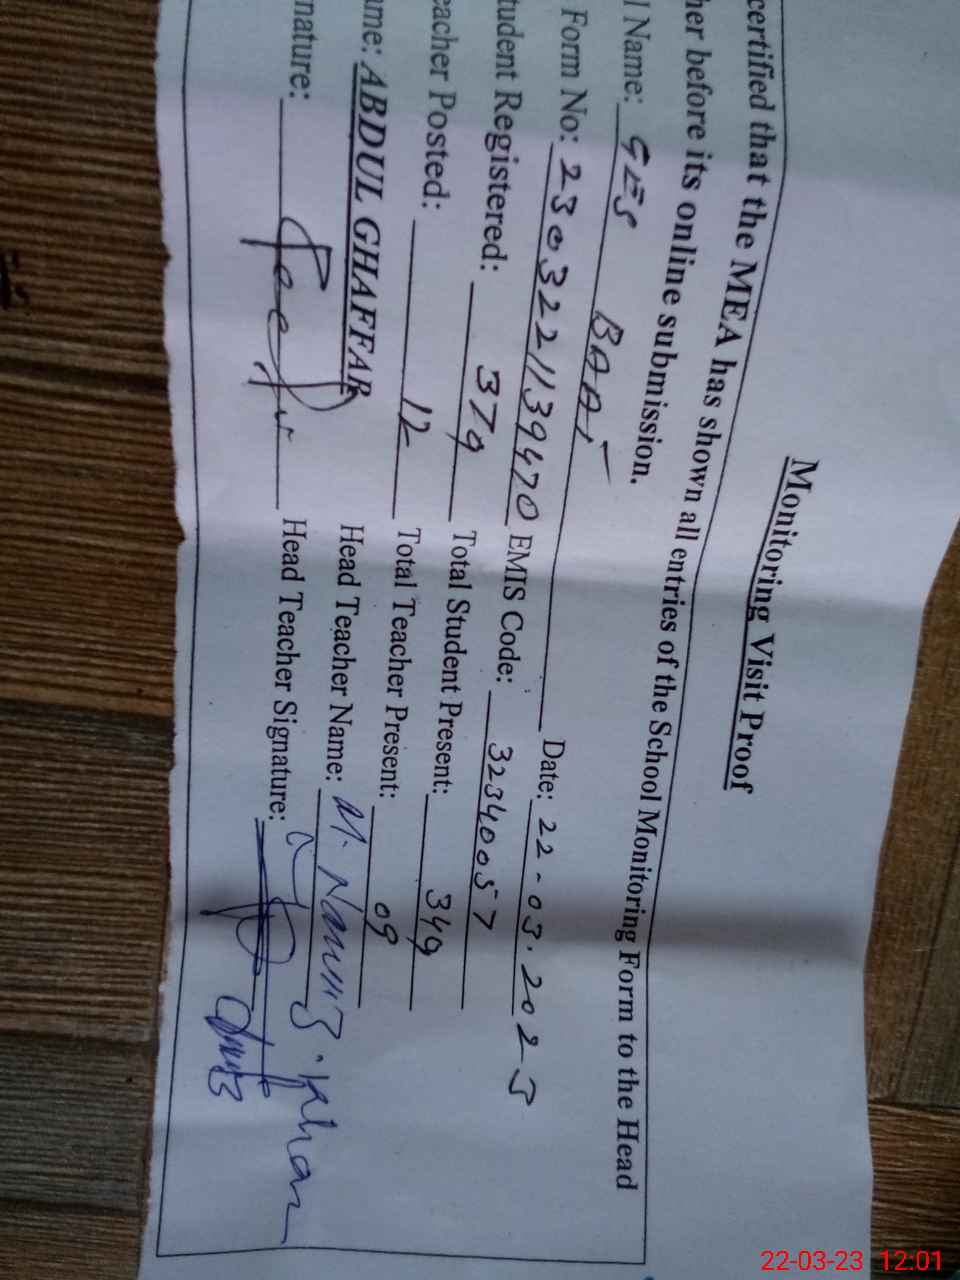 Monitoring Visit Proof
certified that the MEA has shown all entries of the School Monitoring Form to the Head
her before its online submission.
l Name: GES BAAT Date: 22-03-2023
Form No: 230322113947 0 EMIS Code: 32340057
tudent Registered: 379 Total Student Present: 349
eacher Posted: 12 Total Teacher Present: 09
ame: ABDUL GHAFFAR Head Teacher Name: M. Nawaz Khan
nature: Head Teacher Signature:
22-03-23 12:01